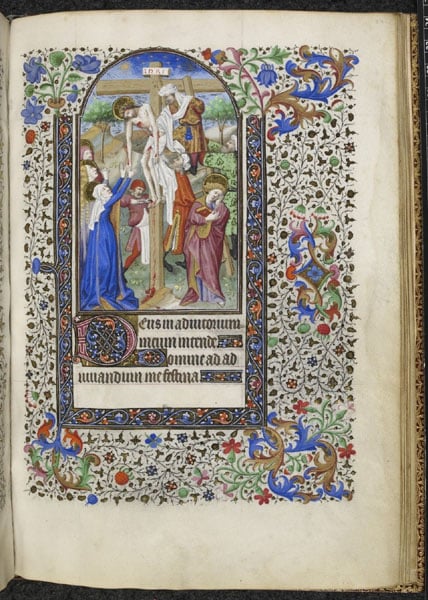 INRI
Deus in adiutorium
meum intende
Domine ad ad
iuuandum me festina